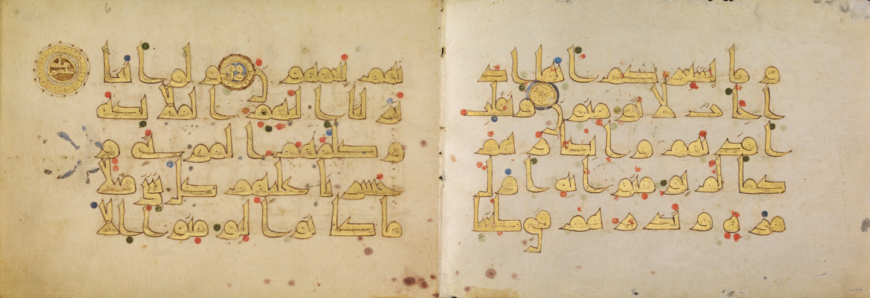 وما يشعركم انها اذ
ا جات لا يومنون ونقلب
افدتهم وابصرهم
كما لم يومنوا به اول
مرة ونذرهم في طغين
هم يعمهون ولو اننا
نزلنا اليهم الملئكة
وكلمهم الموتى و
حشرنا عليهم كل شى قبلا
ما كانوا ليومنوا الا